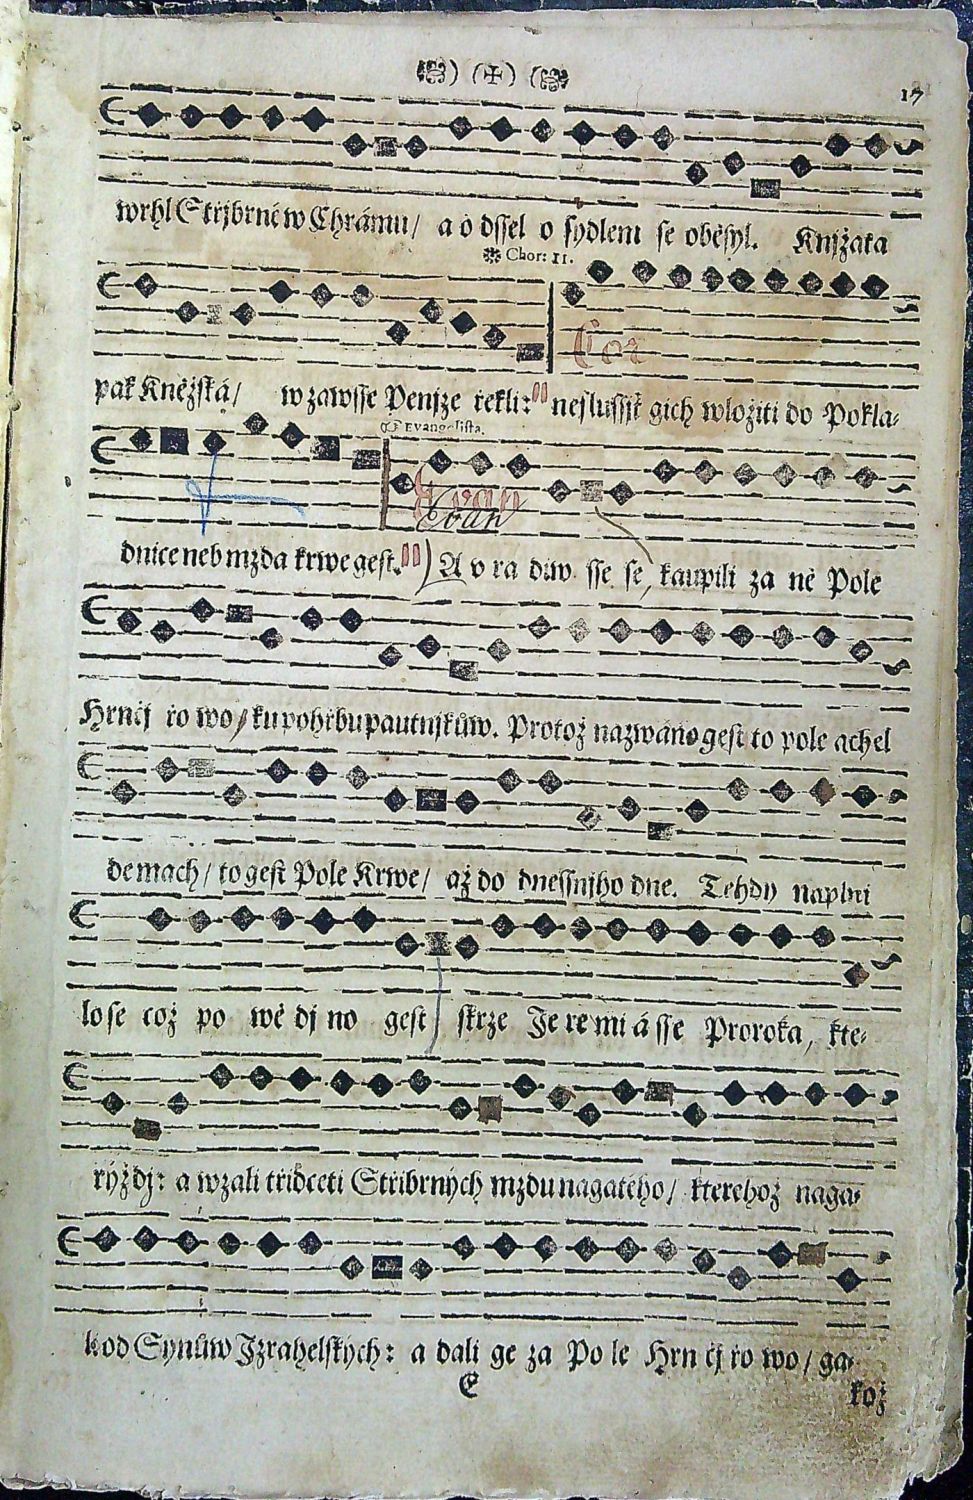 17
wrhl Střjbrné w Chrámu/ a o dssel o sydlem se oběsyl. Knjžata
Chor: II.
Cor
pak Kněžská/ w zawsse Penjze řekli: neslussjť gich wložiti do Pokla-
Evangelista.
Evan
Evan
dnice neb mzda krwe gest. A v ra diw sse se, kaupili za ně Pole
Hrnčj řo wo/ ku pohřbu pautnjkůw. Protož nazwáno gest to pole achel
demach/ to gest Pole Krwe/ až do dnessnjho dne. Tehdy naplni
lo se což po wě dj no gest skrze Je re mi á sse Proroka, kte-
rýždj: a wzali třidceti Střibrných mzdu nagatého/ kterehož naga-
li od Synůw Jzrahelských: a dali ge za Po le Hrn čj řo wo/ ga-
E
kož